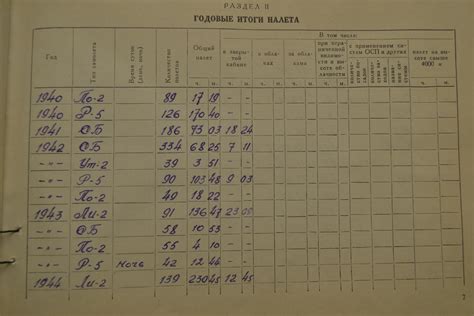 РАЗДЕЛ II
ГОДОВЫЕ ИТОГИ НАЛЕТА
Год
Тип самолета
Время суток (день, ночь)
Количество полетов
Общий налет
В том числе:
в закрытой кабине
в облаках
за облака
при ограниченной видимости и высоте облачности
с применением систем ОСП и других
налет на высоте свыше 4000 м
ч. м. ч. м. ч. м. ч. м. ч. м.
1940 По-2 89 17 19 - -
1940 Р-5 126 170 40 - -
1941 СБ 186 93 03 18 24
1942 СБ 334 68 25 7 11
-"- Ут-2 39 3 51 - -
-"- Р-5 90 103 48 9 03
-"- По-2 49 18 22 - -
1943 Ли-2 91 136 47 23 05
-"- СБ 58 10 53 - -
-"- По-2 55 4 10 - -
-"- Р-5 ночь 42 12 44 - -
1944 Ли-2 139 230 45 12 45
7